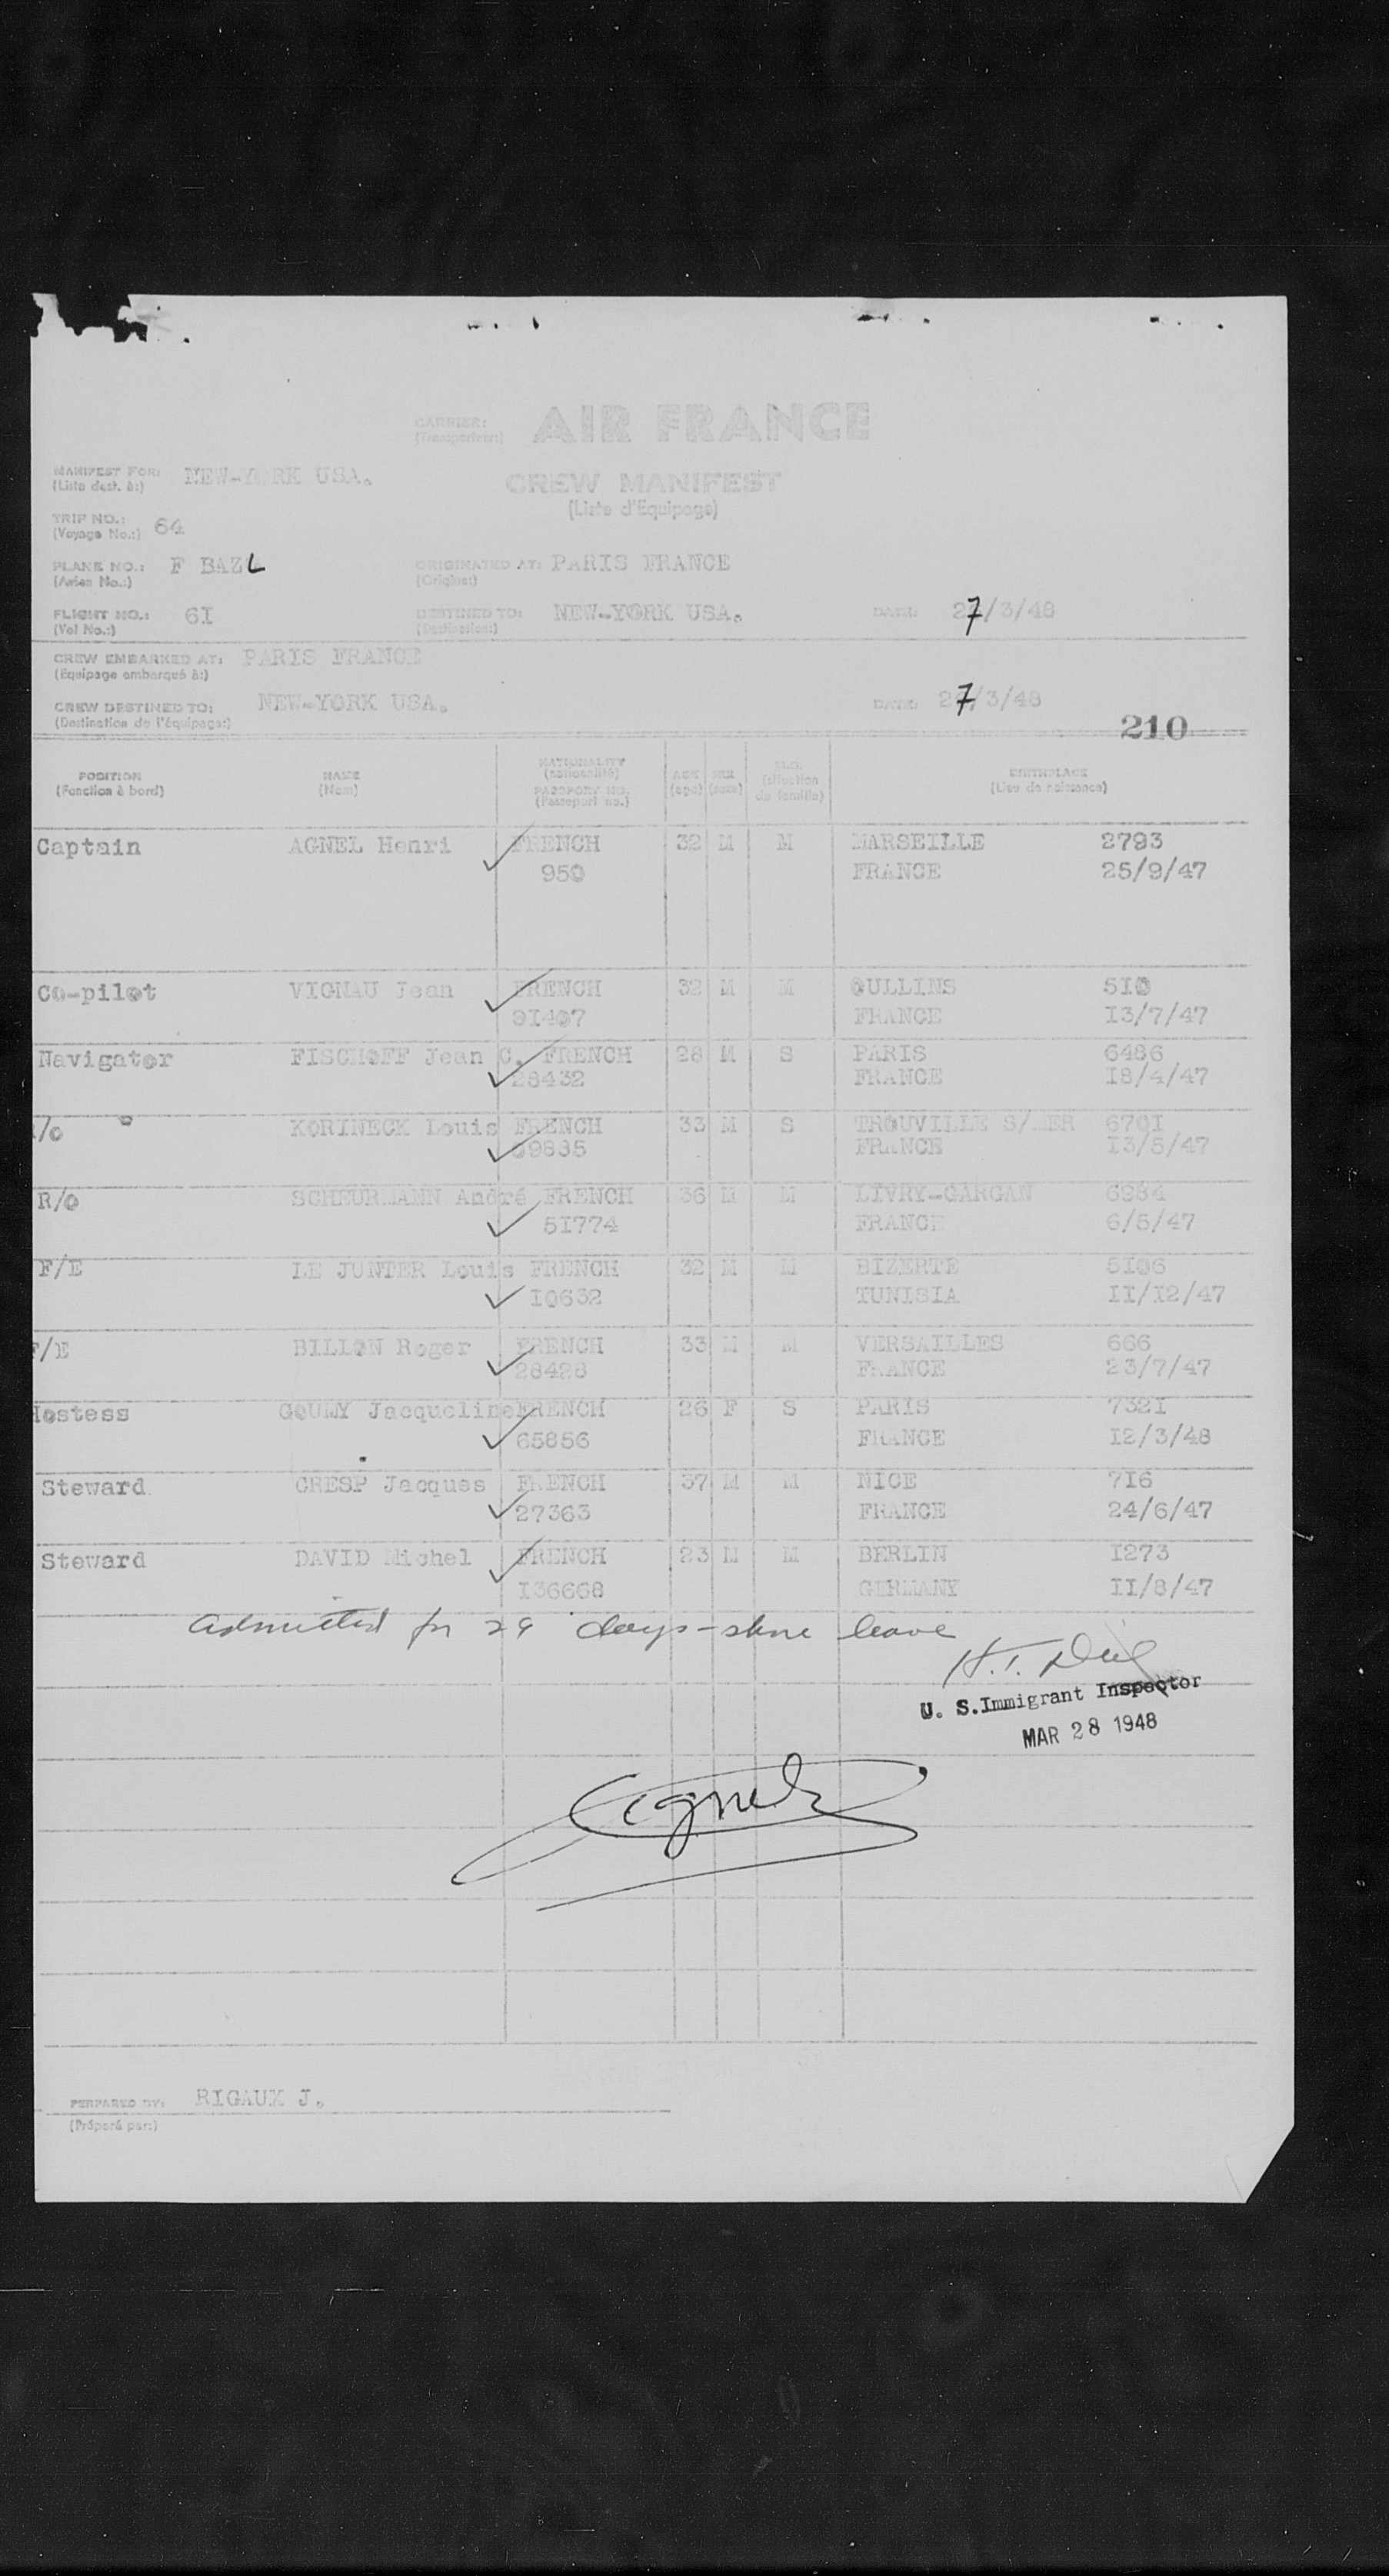 CARRIER: AIR FRANCE
(Transporteur:)
MANIFEST FOR: NEW-YORK USA.
(Liste dest. à:)
CREW MANIFEST
(Liste d'Equipage)
TRIP NO.: 64
(Voyage No.:)
PLANE NO.: F BAZL ORIGINATED AT: PARIS FRANCE
(Avion No.:) (Origine:)
FLIGHT NO.: 6I DESTINED TO: NEW-YORK USA. DATE: 27/3/48
(Vol No.:) (Destination:)
CREW EMBARKED AT: PARIS FRANCE
(Equipage embarqué à:)
CREW DESTINED TO: NEW-YORK USA. DATE: 27/3/48
(Destination de l'équipage:)
210
POSITION NAME NATIONALITY AGE SEX BIRTHPLACE
(Fonction à bord) (Nom) (nationalité) (age) (sexe) (situation de famille) (Lieu de naissance)
PASSPORT NO.
(Passeport no.)
Captain AGNEL Henri FRENCH 32 M M MARSEILLE 2793
950 FRANCE 25/9/47
Co-pilot VIGNAU Jean FRENCH 32 M M OULLINS 5I0
0I407 FRANCE I3/7/47
Navigator FISCHOFF Jean C. FRENCH 28 M S PARIS 6486
28432 FRANCE I8/4/47
/o KORINECK Louis FRENCH 33 M S TROUVILLE S/MER 670I
39835 FRANCE I3/5/47
R/O SCHEURMANN André FRENCH 36 M M LIVRY-GARGAN 6984
5I774 FRANCE 6/5/47
F/E LE JUNTER Louis FRENCH 32 M M BIZERTE 5I06
I0632 TUNISIA II/I2/47
F/E BILLON Roger FRENCH 33 M M VERSAILLES 666
28428 FRANCE 23/7/47
Hostess GOUMY Jacqueline FRENCH 26 F S PARIS 732I
65856 FRANCE I2/3/48
Steward CRESP Jacques FRENCH 37 M M NICE 7I6
27363 FRANCE 24/6/47
Steward DAVID Michel FRENCH 23 M M BERLIN I273
I36668 GERMANY II/8/47
Admitted for 29 days-shore leave
H.T.
U. S. Immigrant Inspector
MAR 28 1948
Agnel
PERPARED BY: RIGAUX J.
(Préparé par:)